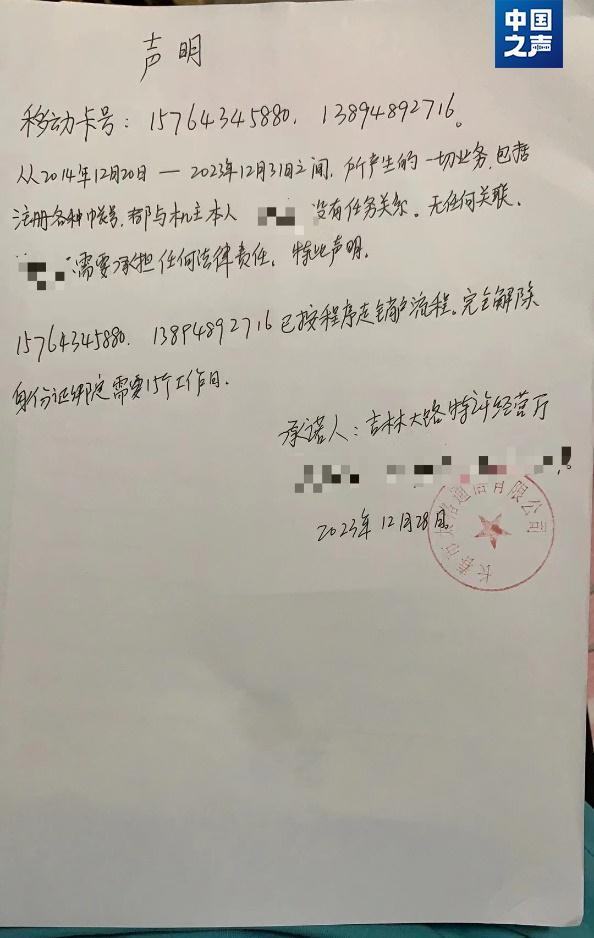 中国
之声
声明
移动卡号：15764345880．13894892716。
从2014年12月20日 — 2023年12月31日之间．所产生的一切业务，包括
注册各种帐号，都与机主本人 没有任务关系。无任何关联。
需要承担任何法律责任。特此声明。
15764345880．13894892716已按程序走销户流程。完全解除
身份证绑定需要15个工作日．
承诺人：吉林大路特许经营厅
2023年12月28日
长春市 通信有限公司